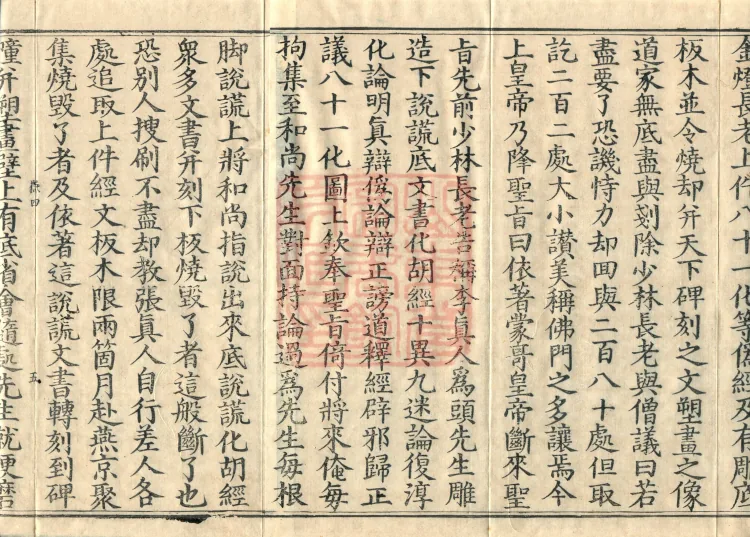 金燈長老上件八十一化等偽經及有雕底
板木並令燒却并天下碑刻之文塑畫之像
道家無底盡與剗除少林長老與僧議曰若
盡要了恐譏恃力却回與二百八十處但取
訖二百二處大小讃美稱佛門之多讓焉今
上皇帝乃降聖旨曰依著蒙哥皇帝斷來聖
旨先前少林長老告稱李真人為頭先生雕
造下說謊底文書化胡經十異九迷論復淳
化論明真辯偽論辯正謗道釋經辟邪歸正
議八十一化圖上欽奉聖旨倚付將來俺每
拘集至和尚先生對面持論過為先生每根
脚說謊上將和尚指說出來底說謊化胡經
衆多文書并刻下板燒毀了者這般斷了也
恐別人搜刷不盡却教張真人自行差人各
處追取上件經文板木限兩箇月赴燕京聚
集燒毀了者及依著這說謊文書轉刻到碑
五
幢并塑畫壁上有底省會隨處先生就便磨